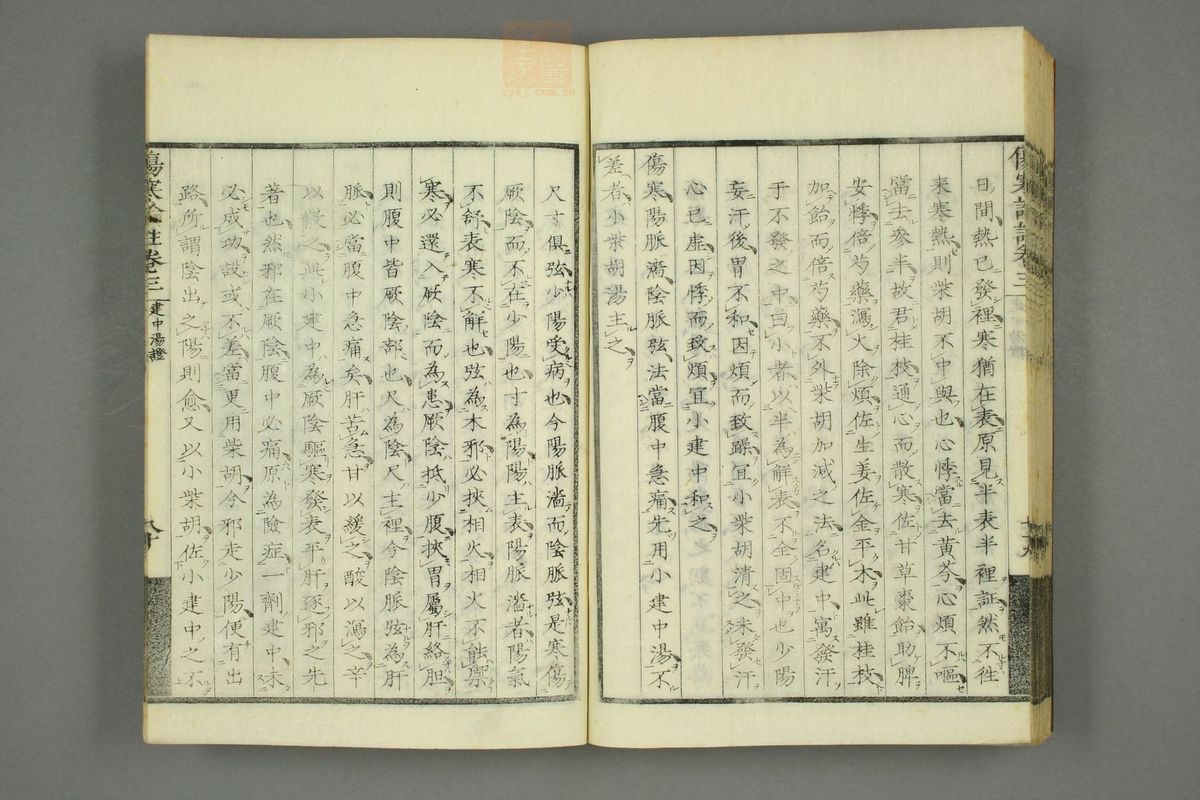 日間熱已發裡寒猶在表原見半表半裡証然不徃
来寒熱則柴胡不中與也心悸當去黃芩心煩不嘔
當去參半故君桂枝通心而散寒佐甘草棗飴助脾
安悸倍芍藥瀉火除煩佐生姜佐金平木此雖桂枝
加飴而倍芍藥不外柴胡加減之法名建中寓發汗
于不發之中曰小者以半為解表不全固中也少陽
妄汗後胃不和因煩而致躁宜小柴胡清之未發汗
心已虛因悸而致煩宜小建中和之
傷寒陽脈濇陰脈弦法當腹中急痛先用小建中湯不
差者小柴胡湯主之
尺寸俱弦少陽受病也今陽脈濇而陰脈弦是寒傷
厥陰而不在少陽也寸為陽陽主表陽脈濇者陽氣
不舒表寒不解也弦為木邪必挾相火相火不能禦
寒必還入厥陰而為患厥陰抵少腹挾胃屬肝絡胆
則腹中皆厥陰部也尺為陰尺主裡今陰脈弦為肝
脈必當腹中急痛矣肝苦急甘以緩之酸以瀉之辛
以散之此小建中為厥陰驅寒發表平肝逐邪之先
著也然邪在厥陰腹中必痛原為險症一劑建中未
必成功設或不差當更用柴胡令邪走少陽便有出
路所謂陰出之陽則愈又以小柴胡佐小建中之不
卷三
建中湯證